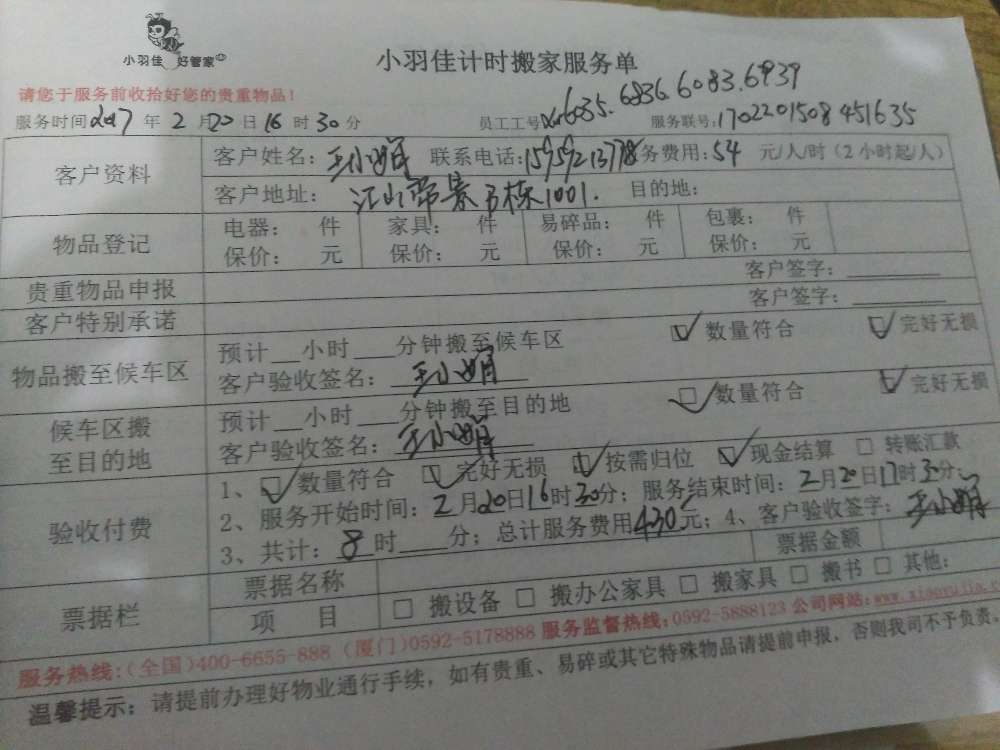 小羽佳 好管家
小羽佳计时搬家服务单
请您于服务前收拾好您的贵重物品！
服务时间2017年2月20日16时30分 员工工号 6035.6836.6083.6939 服务联号:1702201508451635
客户资料 客户姓名：王小娟 联系电话:15959213778 务费用:54 元/人/时（2小时起/人）
客户地址： 江山帝景 栋1001. 目的地：
物品登记 电器： 件 家具： 件 易碎品： 件 包裹： 件
保价： 元 保价： 元 保价： 元 保价： 元
贵重物品申报 客户签字：
客户特别承诺 客户签字：
物品搬至候车区 预计 小时 分钟搬至候车区 数量符合 完好无损
客户验收签名：王小娟
候车区搬至目的地 预计 小时 分钟搬至目的地 数量符合 完好无损
客户验收签名：王小娟
验收付费 1、数量符合 完好无损 按需归位 现金结算 转账汇款
2、服务开始时间：2月20日16时30分；服务结束时间：2月20日17时30分；
3、共计：8时 分；总计服务费用430元；4、客户验收签字：王小娟
票据栏 票据名称 票据金额
项 目 搬设备 搬办公家具 搬家具 搬书 其他：
服务热线:(全国)400-6655-888 (厦门)0592-5178888 服务监督热线:0592-5888123 公司网站:www.xiaoyujia.
温馨提示：请提前办理好物业通行手续，如有贵重、易碎或其它特殊物品请提前申报，否则我司不予负责。